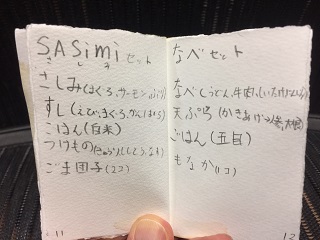 SASimi セット
さしみ(まぐろ、サーモン、ぶり)
すし(えび、まぐろ、かんぱち)
ごはん(白米)
つけもの(きゅうり
ごま団子(2コ)
11
なべセット
なべ(うどん、牛肉、しいたけ
天ぷら(かきあげ
ごはん(五目)
もなか(1コ)
12